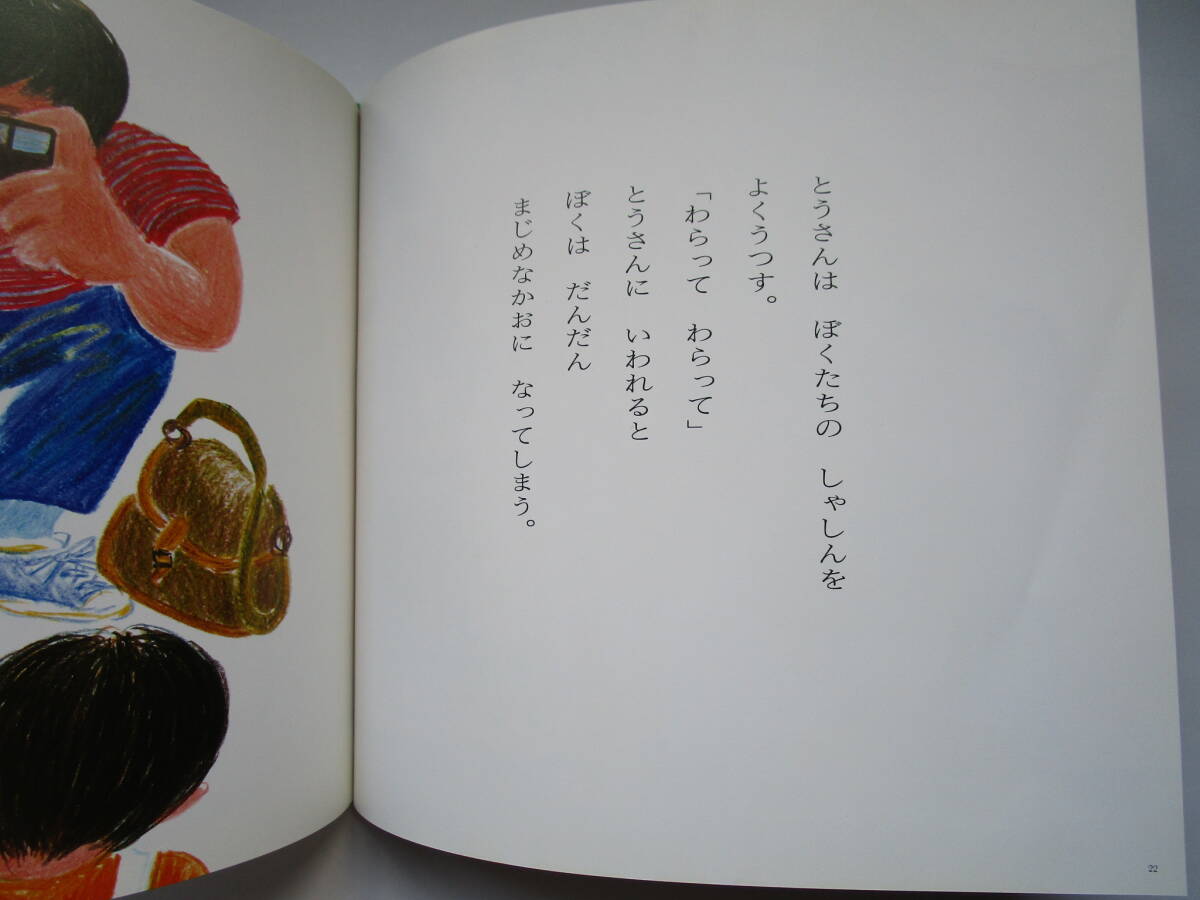 とうさんは ぼくたちの しゃしんを
よくうつす。
「わらって わらって」
とうさんに いわれると
ぼくは だんだん
まじめなかおに なってしまう。
22